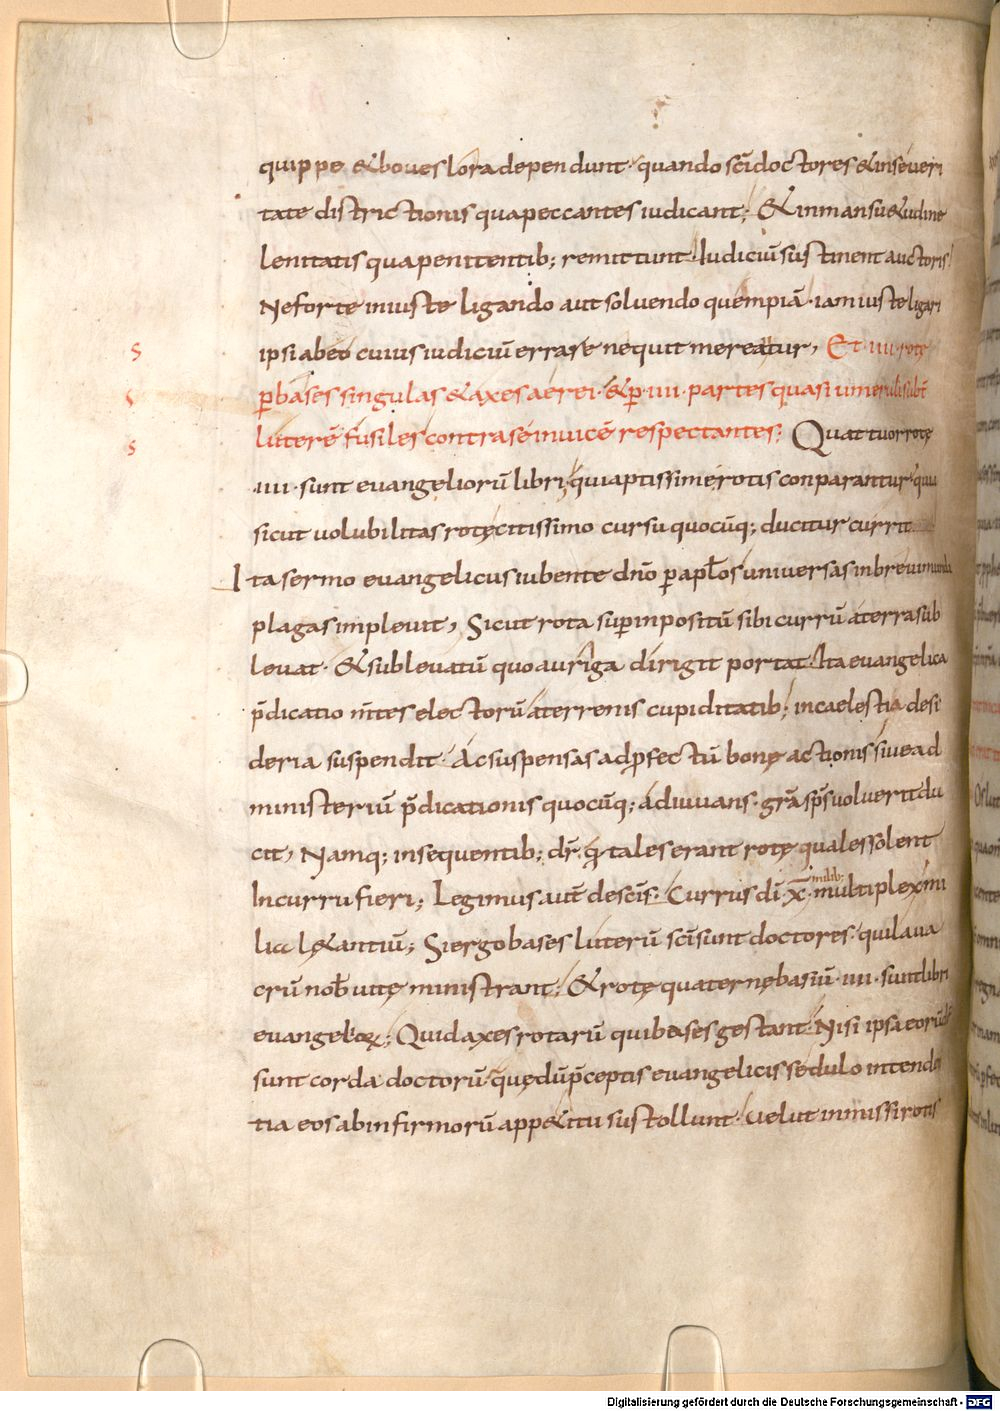 quippe & boues lora dependunt· quando sc̄i doctores & inseueri
tate districtionis qua peccantes iudicant; & in mansu&udine
lenitatis qua penitentib; remittunt· Iudiciū sustinent auctoris
Ne forte iniuste ligando aut soluendo quempiā· iam iuste ligari
ipsi ab eo cuius iudiciū errare nequit mereatur, Et·iiii·rotę
s
p̄ bases singulas & axes aerei· & p̄·iiii·partes quasi umeruli subt̄
s
luterē fusiles contra se inuicē respectantes; Quattuor rotę
s
·iiii·sunt euangeliorū libri, qui aptissime rotis conparantur· quia
sicut uolubilitas rotę citissimo cursu quocūq; ducitur currit
Ita sermo euangelicus iubente dn̄o p̄ apl̄os uniuersas in breui mundi
plagas impleuit, Sicut rota sup̄inpositū sibi currū a terra sub
leuat· & subleuatū quo auriga dirigit portat· Ita euangelica
p̄dicatio m̄tes electorū a terrenis cupiditatib; in caelestia desi
deria suspendit· Ac suspensas ad p̄fectū bonę actionis siue ad
ministeriū p̄dicationis quocūq; adiuuans· grā sp̄s uoluerit du
cit, Namq; in sequentib; dr̄· q̄ tales erant rotę quales solent
In curru fieri; Legimus aut̄ de sc̄is· Currus dī x̄· milib; multiplex mi
lia l&antiū; Si ergo bases luterū sc̄i sunt doctores· qui laua
crū nob̄ uitę ministrant· & rotę quaternę basiū·iiii·sunt libri
euangelioꝝ; Quid axes rotarū qui bases gestant· Nisi ipsa eorūd̄
sunt corda doctorū· quę dū p̄ceptis euangelicis sedulo intend&
tia eos ab infirmorū app&itu sustollunt· Uelut inmissi rotis
Digitalisierung gefördert durch die Deutsche Forschungsgemeinschaft - DFG